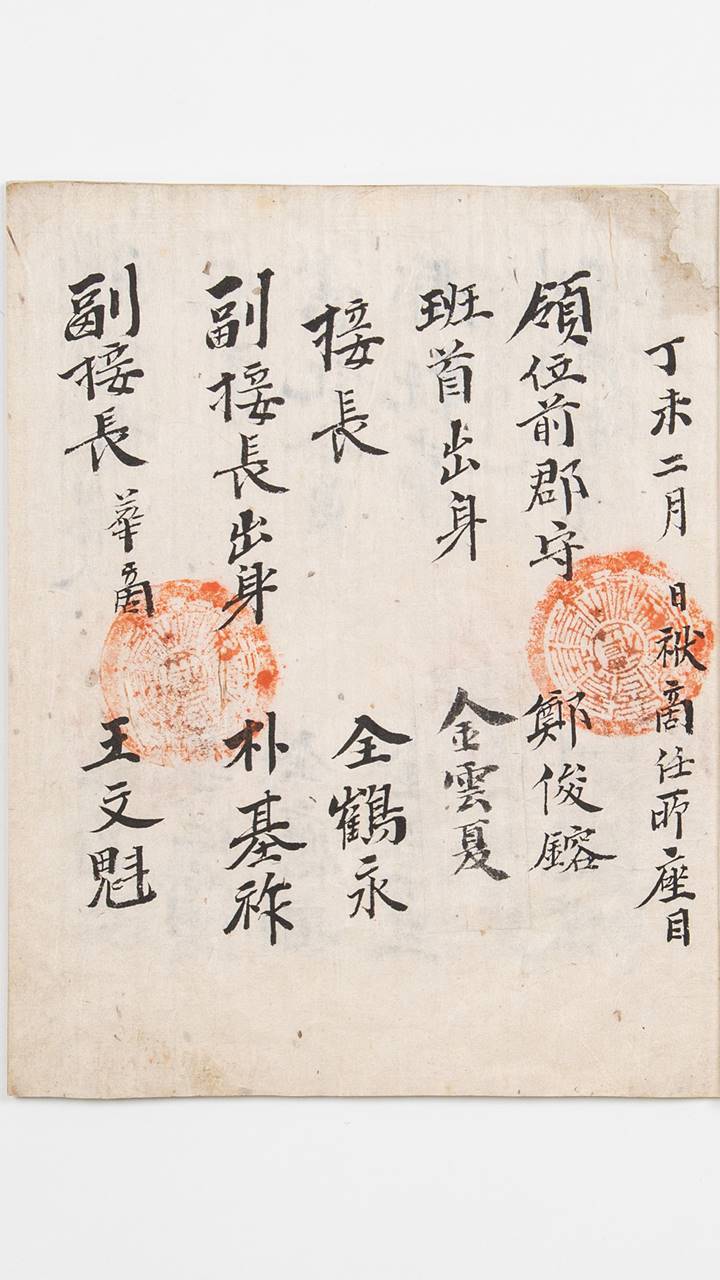 丁未二月 日袱商任所座目
領位前郡守 鄭俊鎔
班首出身 金雲夏
接長 全鶴永
副接長出身 朴基祚
副接長 華商 王文魁